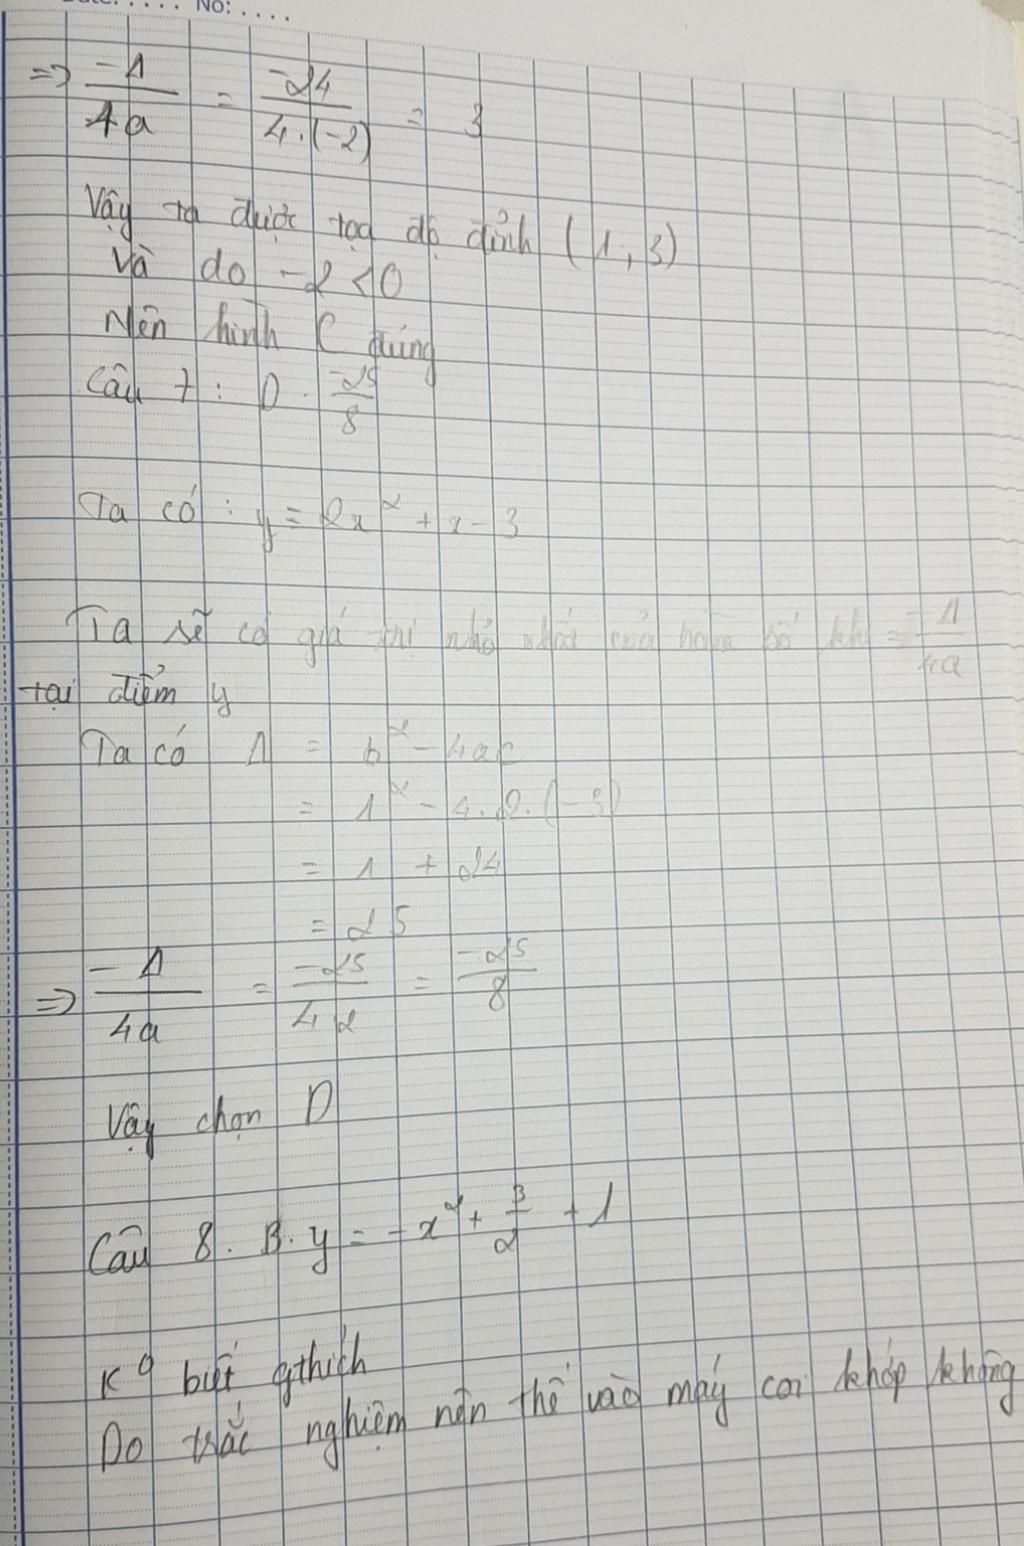 No: ....
=> -Δ/4a = -24/4.(-2) = 3
Vậy ta được tọa độ đỉnh (1,3)
Và do -2<0
Nên hình C đúng
Câu 7: D. -25/8
Ta có: y = 2x² + x - 3
Ta sẽ có giá trị nhỏ nhất của hàm số khi = -Δ/4a
tại điểm y
Ta có Δ = b² - 4ac
= 1² - 4.2.(-3)
= 1 + 24
= 25
=> -Δ/4a = -25/4.2 = -25/8
Vậy chọn D
Câu 8. B. y = -x² + 3/2 + 1
K⁰ biết gthích
Do trắc nghiệm nên thế vào máy coi khớp không